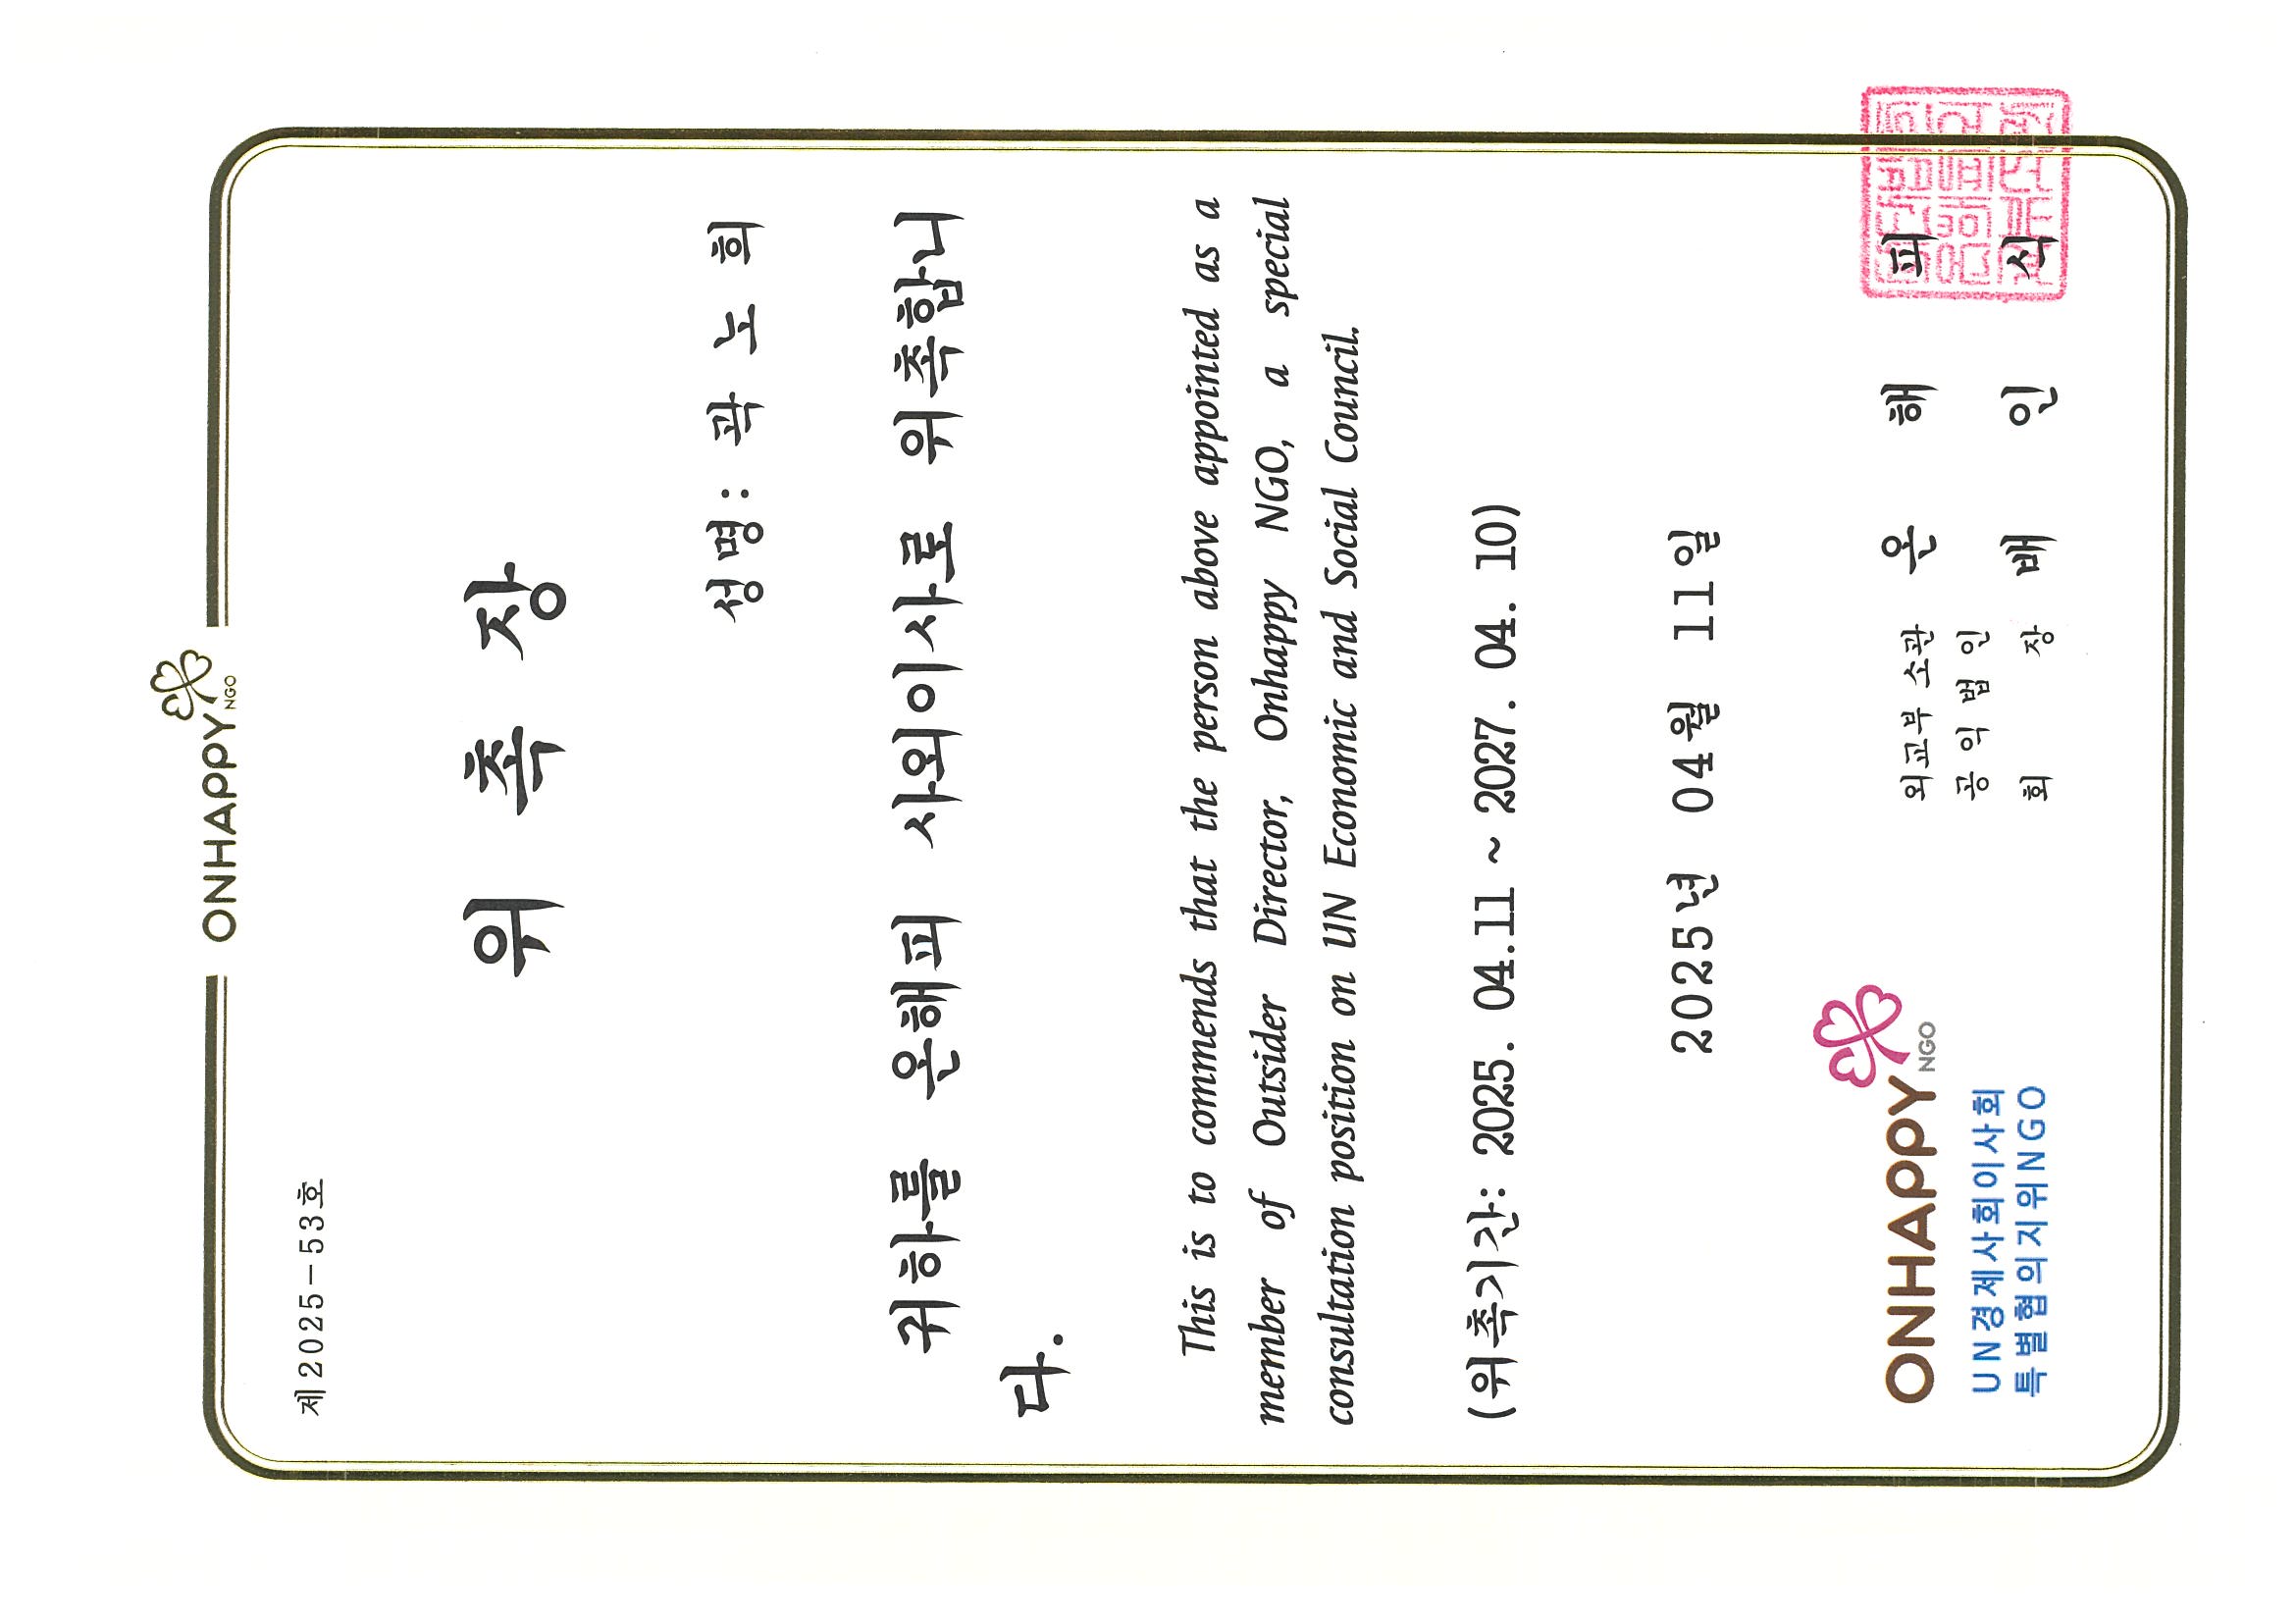 ONHAPPY NGO
제2025-53호
위 촉 장
성명: 곽 노 희
귀하를 온해피 사외이사로 위촉합니
다.
This is to commends that the person above appointed as a
member of Outsider Director, Onhappy NGO, a special
consultation position on UN Economic and Social Council.
(위촉기간: 2025. 04.11 ~ 2027. 04. 10)
2025년 04월 11일
ONHAPPY NGO
UN경제사회이사회
특별협의지위NGO
외교부 소관
공 익 법 인
온 해 피
회 장 배 인 식